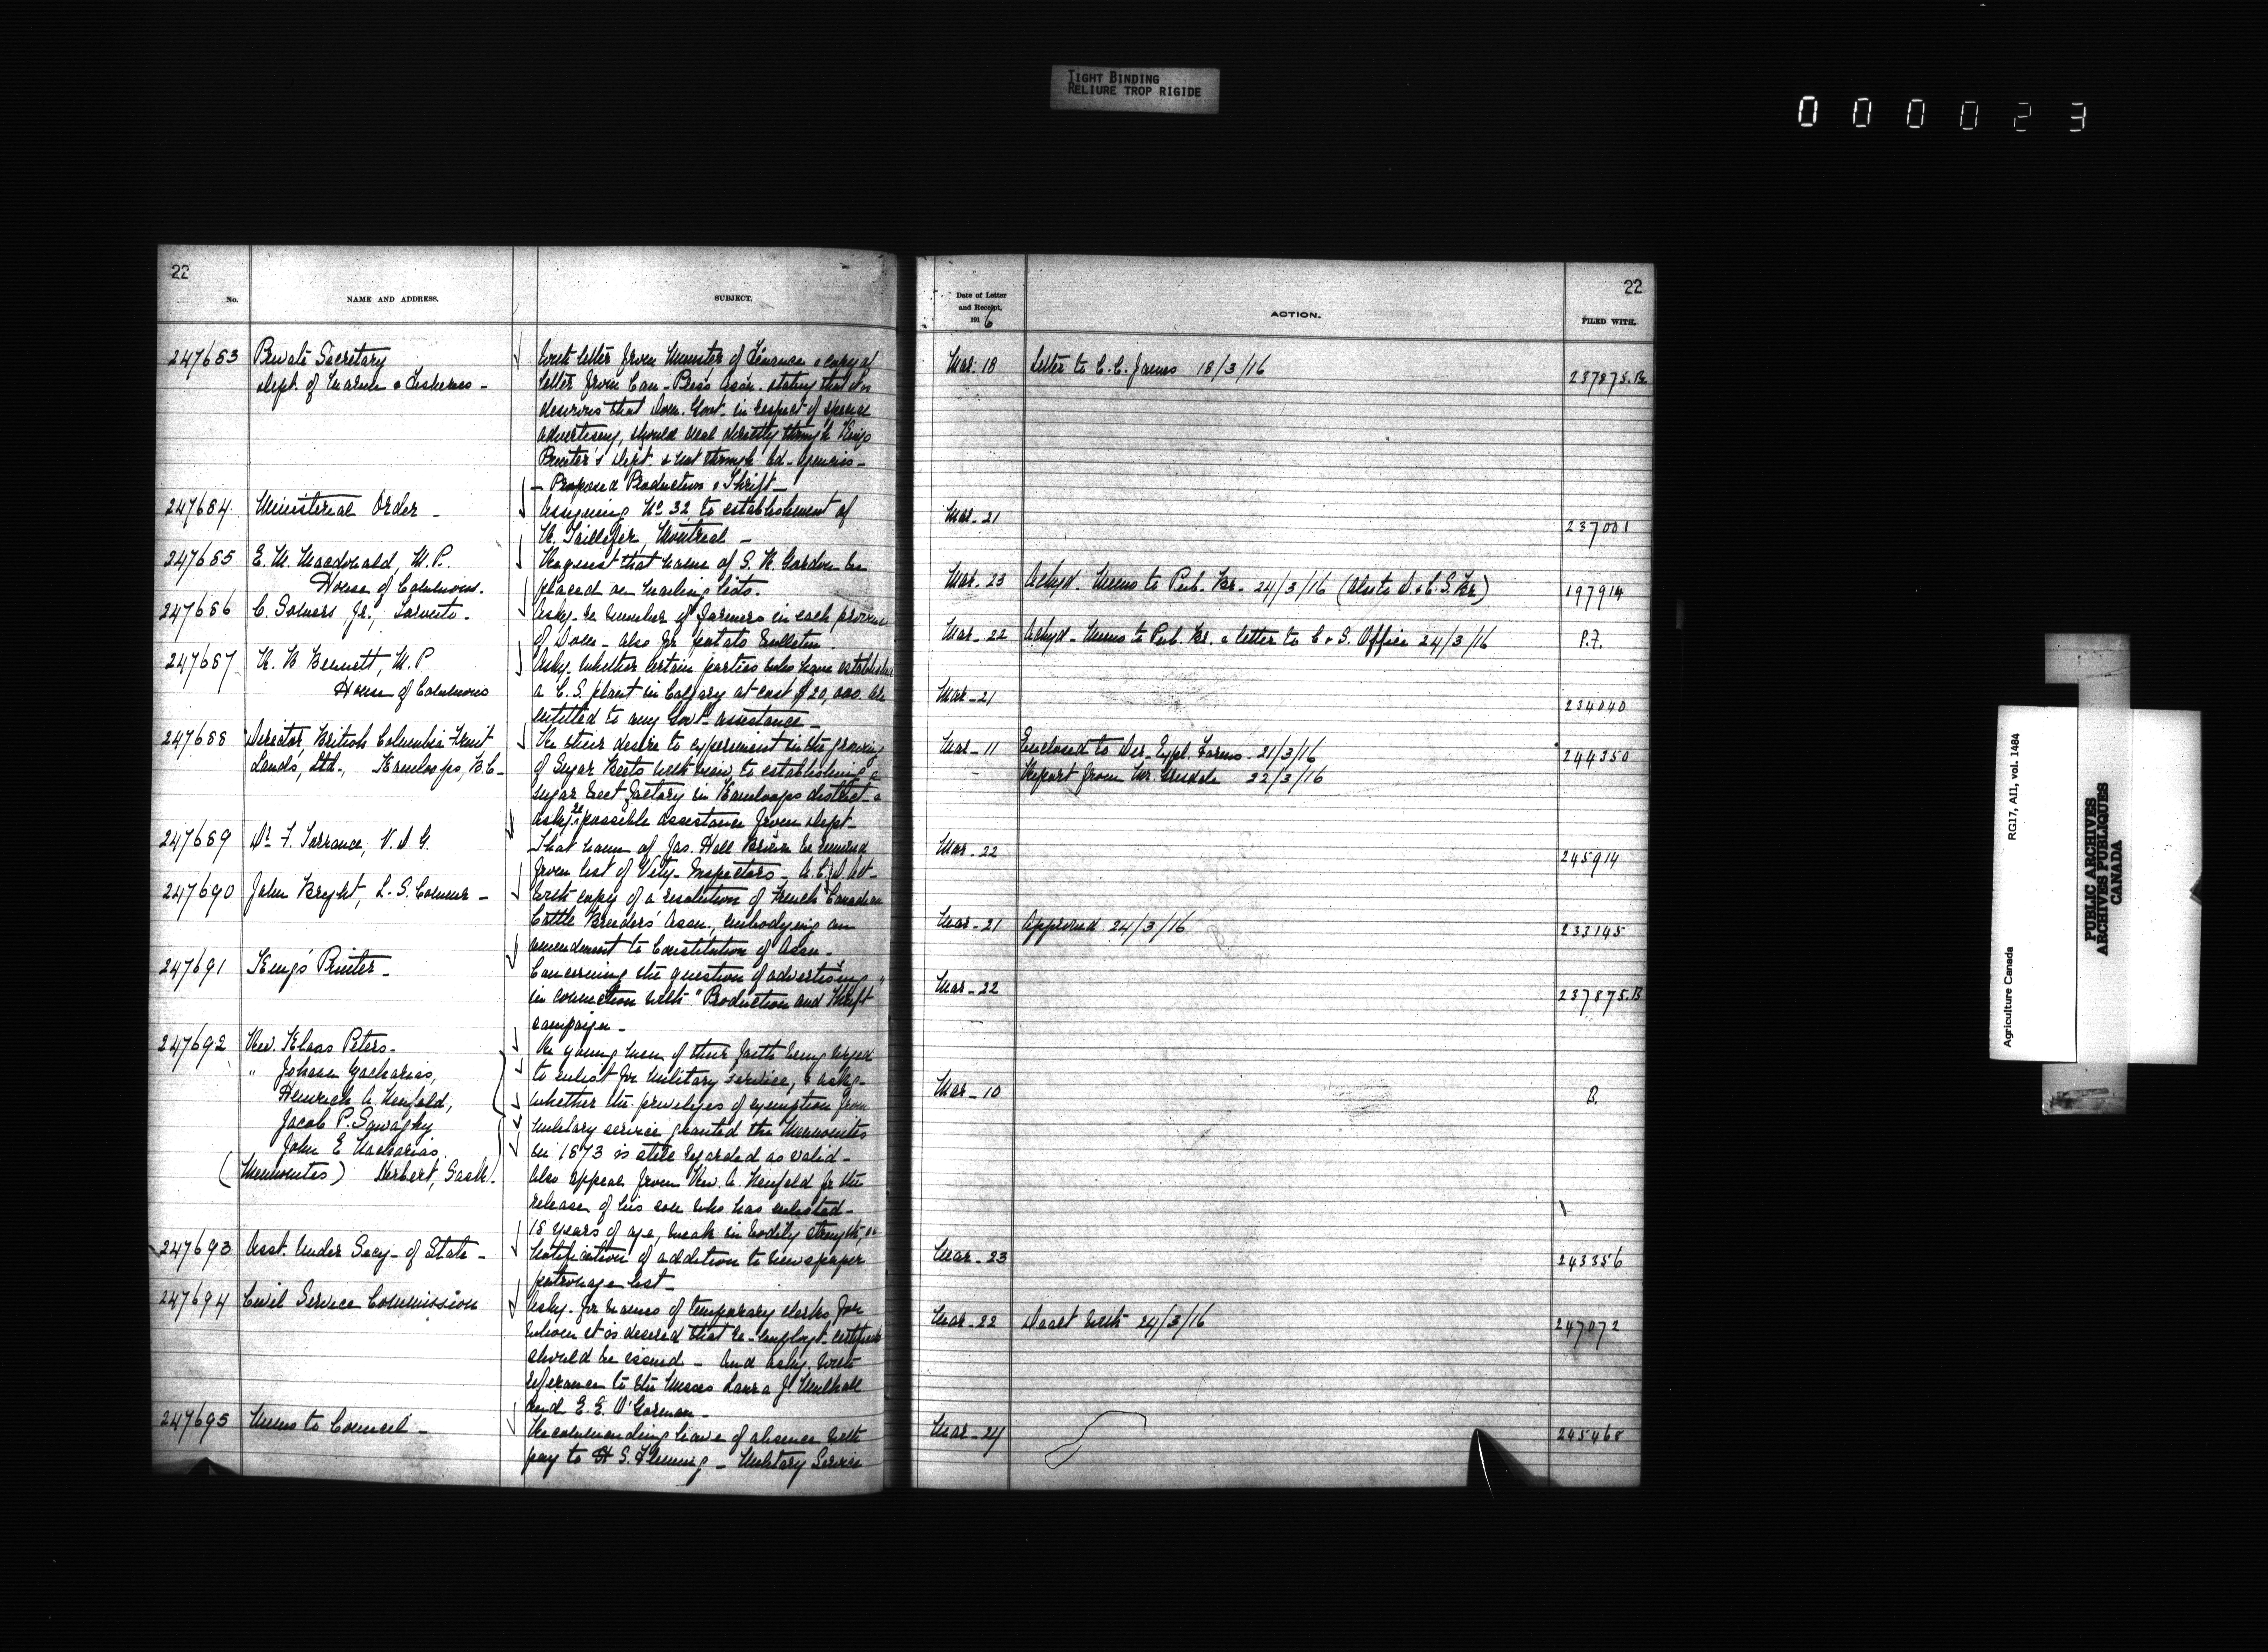 TIGHT BINDING
RELIURE TROP RIGIDE
000023
22
No.
NAME AND ADDRESS.
SUBJECT.
247683 Private Secretary
Dept. of Marine & Fisheries -
With letter from Minister of Finance & copy of
letter from Can. Press Assn. stating that it is
desirous that Dom. Govt. in respect of special
advertising, should deal directly through Kings
Printer's Dept. & not through Ad. Agencies -
- Proposed Production & Thrift -
247684 Ministerial Order -
Assigning No 32 to establishment of
Taillefer, Montreal -
247685 E. M. Macdonald, M.P.
House of Commons.
Request that name of S. R. Gordon be
placed on mailing lists.
247686 C. Jr., Toronto.
Askg. re number of farmers in each province
of Dom. also for potato bulletin
247687 R. B. Bennett, M.P.
House of Commons
Askg. whether certain parties who have established
a C. S. plant in Calgary at cost $20,000. are
entitled to any Govt. assistance -
247688 Director, British Columbia Fruit
Lands, Ltd., Kamloops, B.C.
Re their desire to experiment in the growing
of Sugar Beets with view to establishing a
sugar beet factory in Kamloops district &
askg. re possible assistance from Dept.
247689 Dr. F. Torrance, V.D.G.
That name of Jas. Hall be removed
from list of Vety. Inspectors - A.C.D. Act -
247690 John Bright, L. S. Commr -
With copy of a resolution of French Canadian
Cattle Breeders' Assn., embodying an
amendment to Constitution of Assn.
247691 King's Printer -
Concerning the question of advertising
in connection with "Production and Thrift"
campaign -
247692 Rev. Klaas Peters.
" Johann Zacharias,
Heinrich A Neufeld,
Jacob P.
John E Zacharias
(Mennonites) Herbert, Sask.
Re young men of their faith being urged
to enlist for military service, & askg.
whether the privileges of exemption from
military service granted the Mennonites
in 1873 is still regarded as valid -
Also appeal from Rev. A Neufeld for the
release of his son who has enlisted -
18 years of age, weak in bodily strength, &c
247693 Asst. Under Secy. of State -
Notification of addition to newspaper
patronage list -
247694 Civil Service Commission
Askg. for names of temporary clerks for
whom it is desired that re-employt. certificate
should be issued - And askg. with
reference to the Misses Laura J. Mulhall
and E. E. O'Gorman -
247695 Memo to Council -
Recommending leave of absence with
pay to H S. Fleming - Military Service
22
Date of Letter
and Receipt,
1916
ACTION.
FILED WITH.
Mar. 18 Letter to C. C. James 18/3/16 237875.B.
Mar - 21 237001
Mar. 23 Ackgd. Memo to Pub. Br. 24/3/16 (Also to D. & C. S. Br.) 197914
Mar - 22 Ackgd - Memo to Pub. Br. & letter to C & S. Office 24/3/16 P.F.
Mar - 21 234040
Mar - 11 Enclosed to Dir. Expl. Farms - 21/3/16 244350
Report from Mr. Grisdale 22/3/16
Mar - 22 245914
Mar - 21 Approved 24/3/16 233145
Mar - 22 237875.B
Mar - 10 B.
Mar - 23 243356
Mar - 22 Dealt with 24/3/16 247072
Mar - 24 245468
Agriculture Canada RG17, AI1, vol. 1484
PUBLIC ARCHIVES
ARCHIVES PUBLIQUES
CANADA